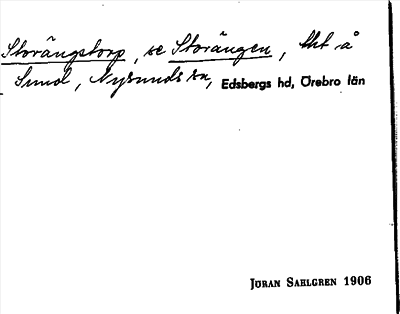 Storängstorp, se Storängen, tht å
Sund, Nysunds sn, Edsbergs hd, Örebro län
JÖRAN SAHLGREN 1906